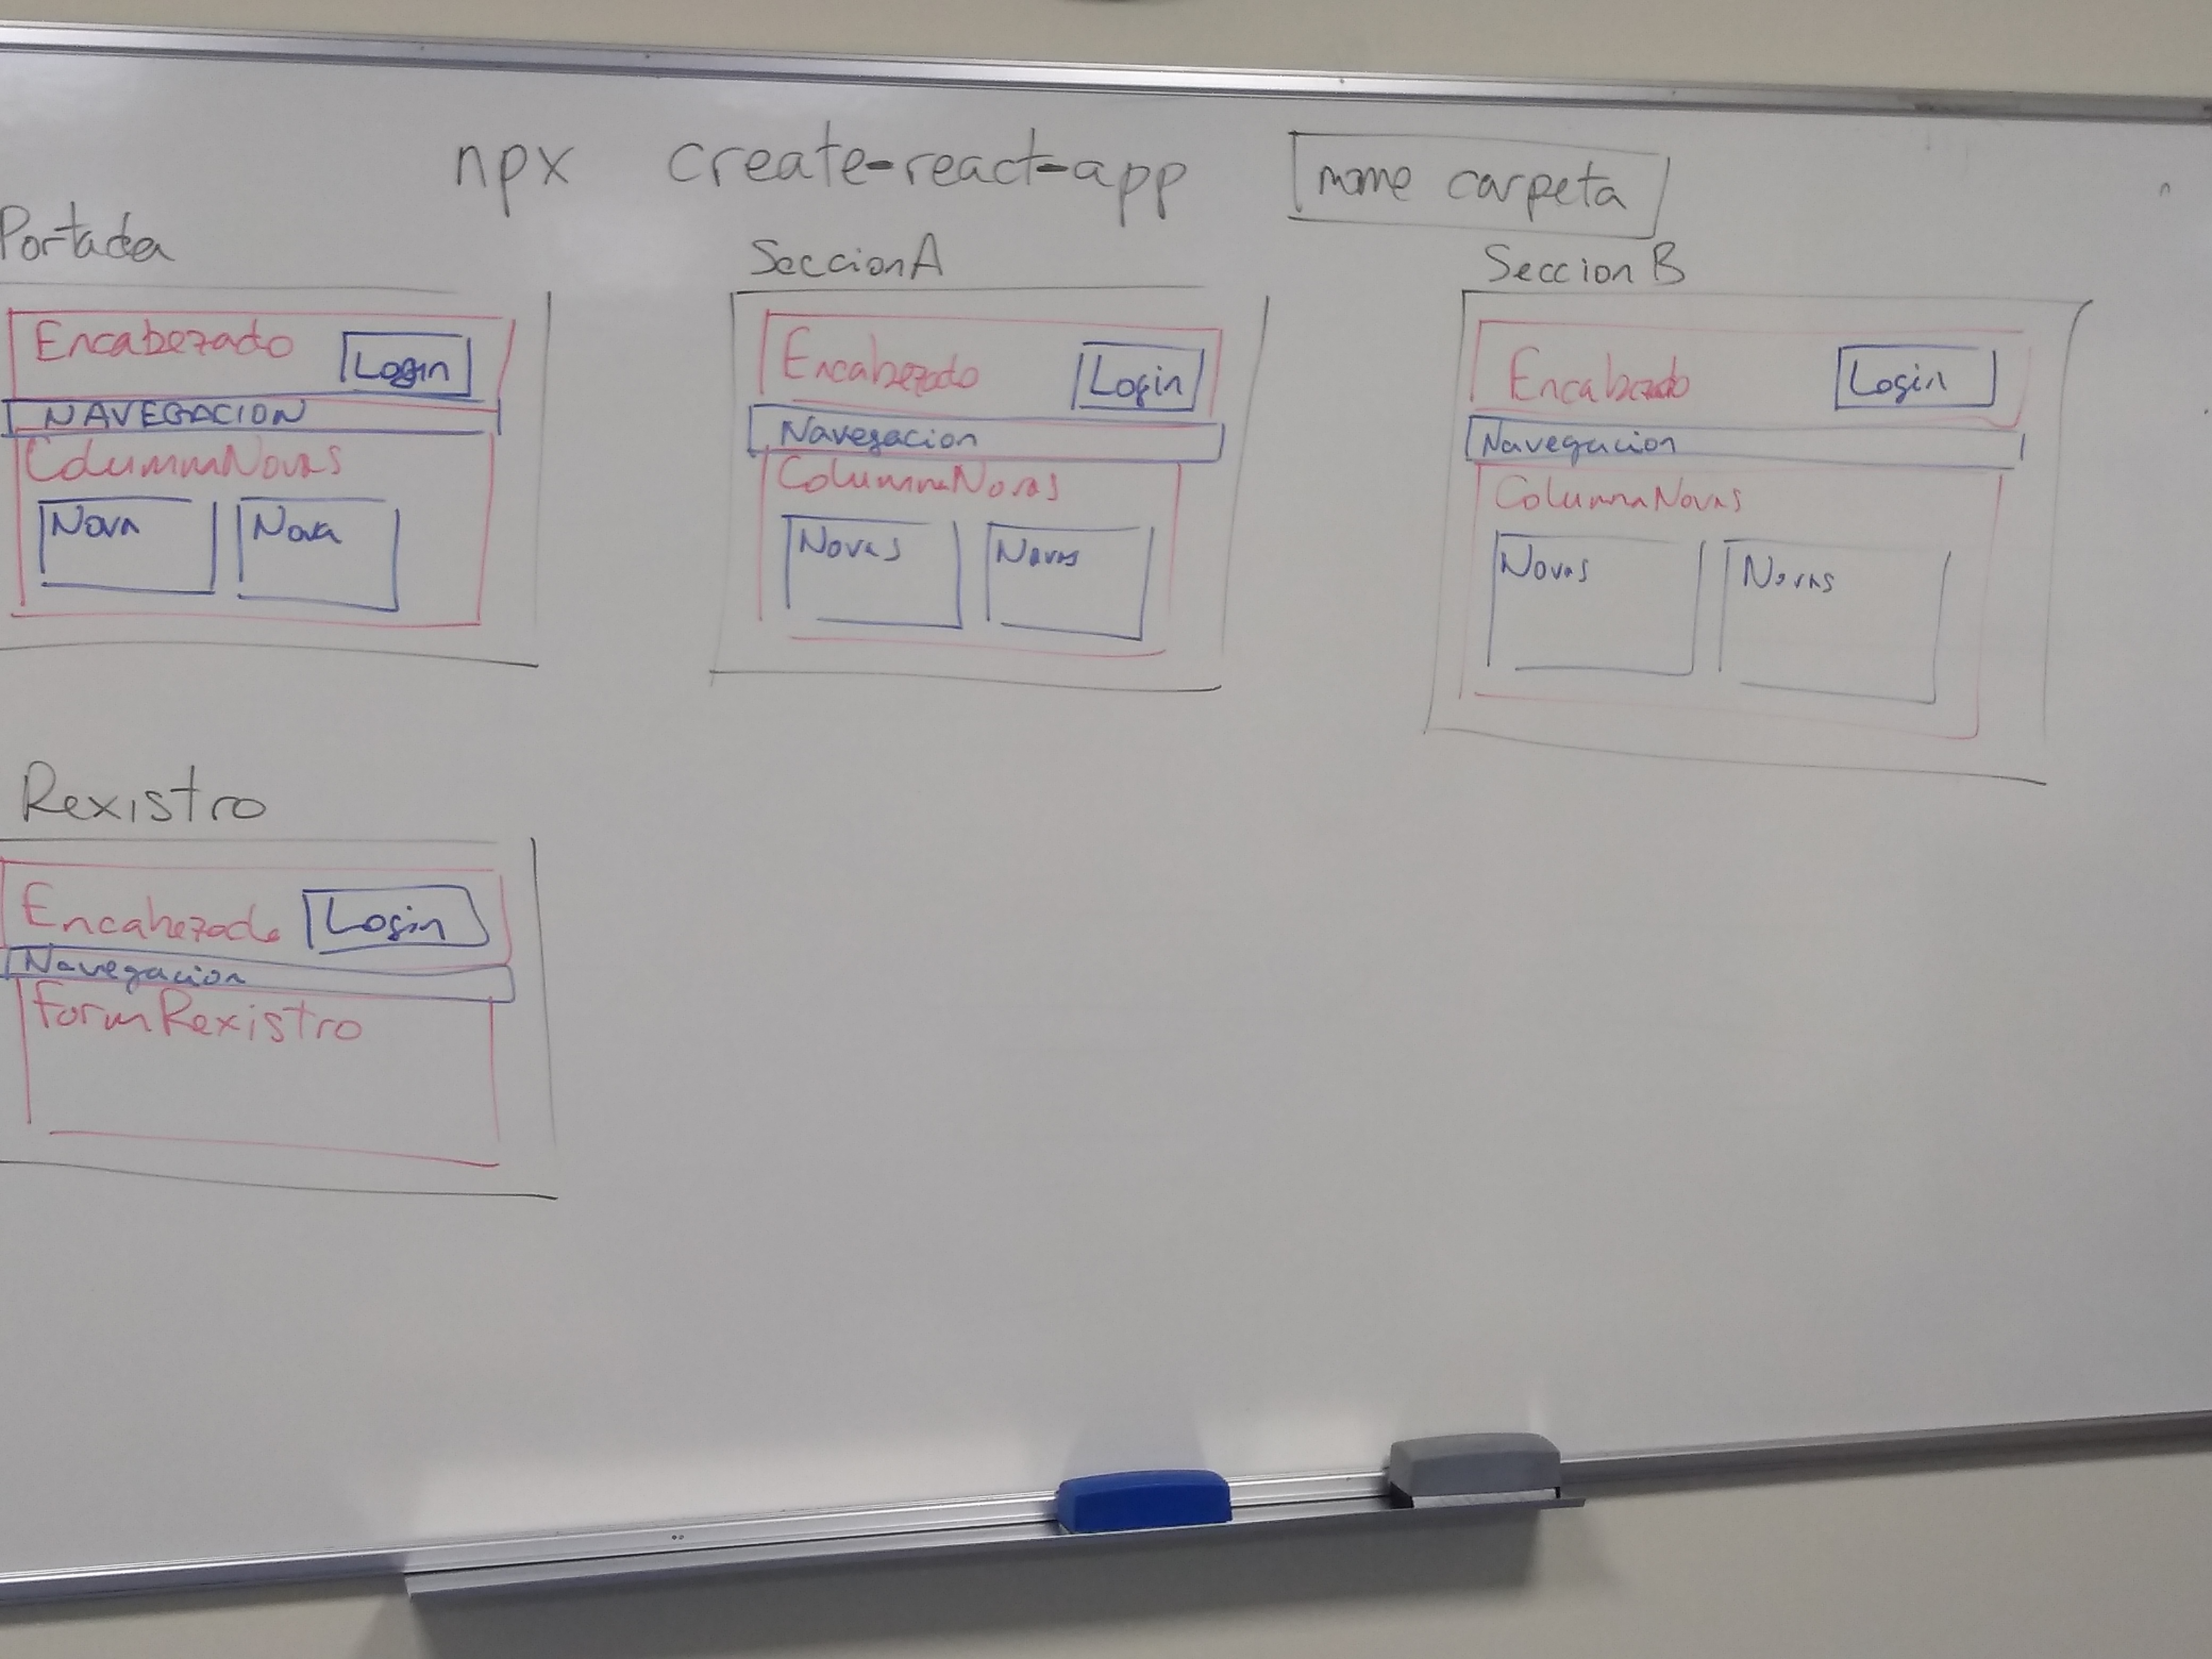 npx create-react-app nome carpeta
Portada
Encabezado Login
NAVEGACION
ColumnaNovas
Nova Nova
SeccionA
Encabezado Login
Navegacion
ColumnaNovas
Novas Novas
Seccion B
Encabezado Login
Navegacion
ColumnaNovas
Novas Novas
Rexistro
Encabezado Login
Navegacion
formRexistro